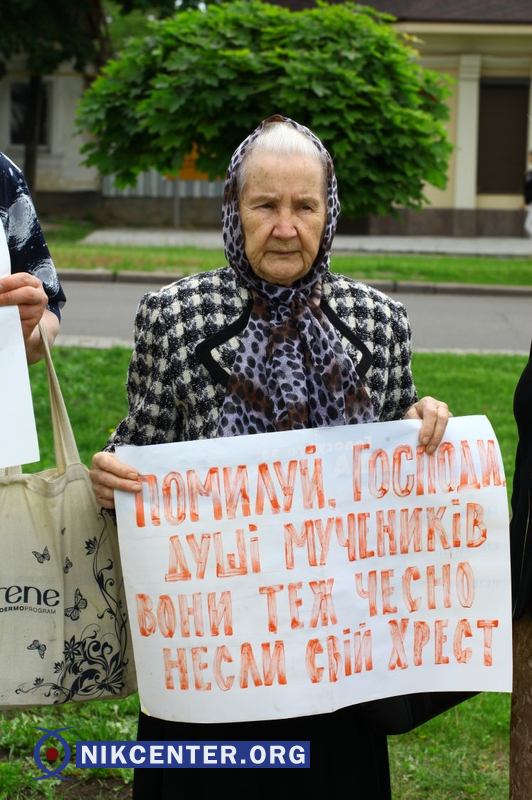 ПОМИЛУЙ, ГОСПОДИ,
ДУШІ МУЧЕНИКІВ
ВОНИ ТЕЖ ЧЕСНО
НЕСЛИ СВІЙ ХРЕСТ
rene
DERMO PROGRAM
NIKCENTER.ORG